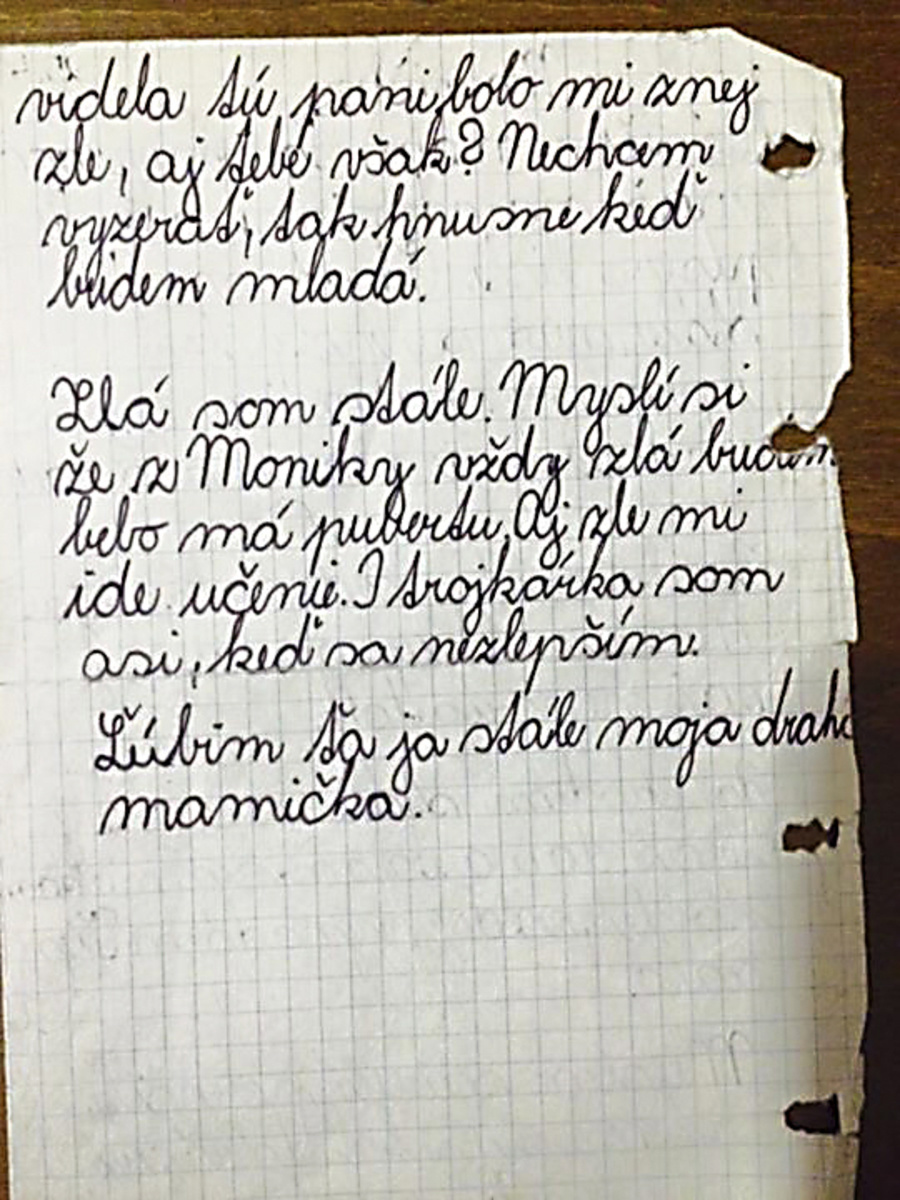 videla tú pani, bolo mi znej
zle, aj tebe však? Nechcem
vyzerať, tak hnusne keď
budem mladá.
Zlá som stále. Myslí si
že z Moniky vždy zlá budem
bebo má pubertu. Aj zle mi
ide učenie. I trojkárka som
asi, keď sa nezlepším.
Ľúbim ťa ja stále moja drahá
mamička.